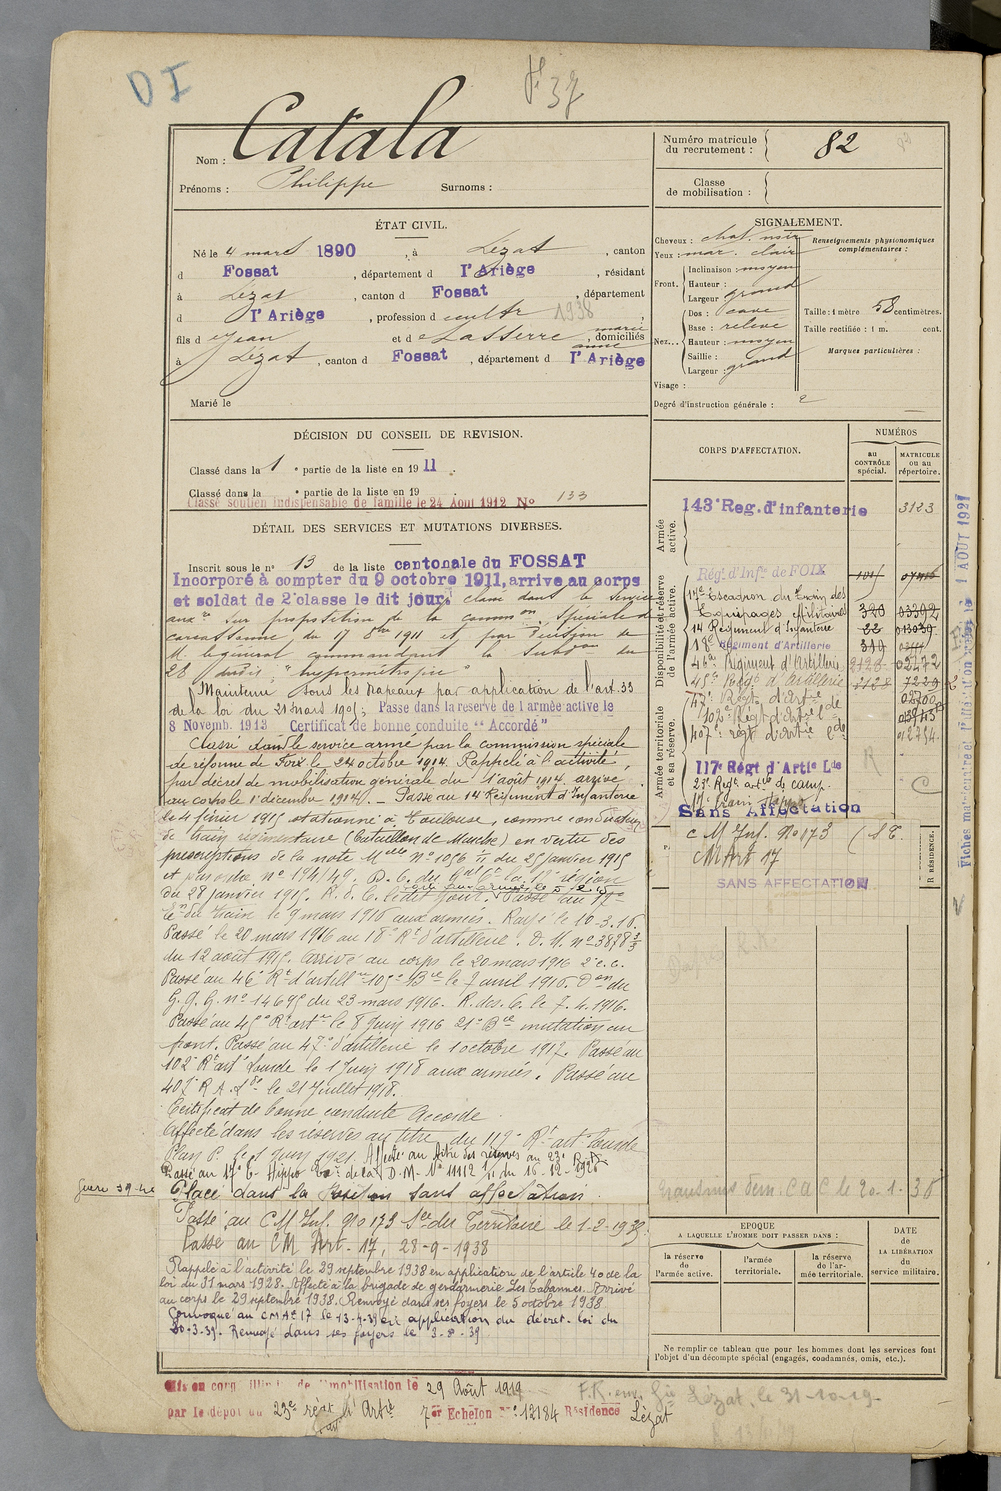 D I
37
Nom : Catala
Prénoms : Philippe Surnoms :
Numéro matricule du recrutement : 82
Classe de mobilisation :
ÉTAT CIVIL.
Né le 4 mars 1890, à Lézat, canton
d Fossat, département d l'Ariège, résidant
à Lézat, canton d Fossat, département
d l'Ariège, profession de cultr 1938 ;
fils d e Jean et de Lasserre marie anne, domiciliés
à Lézat, canton d Fossat, département d l'Ariège
Marié le
SIGNALEMENT.
Cheveux : chat. noir
Yeux : mar. clair
Front. Inclinaison : moyen
Hauteur :
Largeur grand
Nez... Dos : cave
Base : relevé
Hauteur : moyen
Saillie :
Largeur : grand
Visage :
Renseignements physionomiques complémentaires :
Taille : 1 mètre 58 centimètres.
Taille rectifiée : 1 m. cent.
Marques particulières :
Degré d'instruction générale : 2
DÉCISION DU CONSEIL DE REVISION.
Classé dans la 1 e partie de la liste en 1911.
Classé dans la e partie de la liste en 19
Classé soutien indispensable de famille le 24 Aout 1912 No 133
DÉTAIL DES SERVICES ET MUTATIONS DIVERSES.
Inscrit sous le n° 13 de la liste cantonale du FOSSAT
Incorporé à compter du 9 octobre 1911, arrivé au corps
et soldat de 2e classe le dit jour. Classé dans le service
auxre sur proposition de la common spéciale de
carcassonne du 17 8bre 1911 et par décision de
M. le général commandant la Subdon du
28 dudit, "hypermétropie"
Maintenu sous les drapeaux par application de l'art. 33
de la loi du 21 mars 1905; Passé dans la réserve de l'armée active le
8 Novemb. 1913 Certificat de bonne conduite "Accordé"
Classé dans le service armé par la commission spéciale
de réforme de Foix le 24 octobre 1914. Rappelé à l'activité,
par décret de mobilisation générale du 1er août 1914, arrivé
au corps le 1er décembre 1914. - Passé au 14 Régiment d'Infanterie
le 4 février 1915 stationné à Toulouse, comme conducteur
de train régimentaire (Bataillon de Marche) en vertu des
prescriptions de la note Melle n° 1056 du 25 janvier 1915
et par ordre n° 194/49. D. C. du Gal Ct la 17e région
du 28 janvier 1915. R. d. C. le dit jour. Passé au 17e
Em du train le 9 mars 1916 aux armées. Rayé le 10-3-16.
Passé le 20 mars 1916 au 18e Rt d'artillerie. D. M. n° 3898 3/3
du 12 août 1915. Arrivé au corps le 20 mars 1916 2e c.c.
Passé au 46e Rt d'artillrie 105e Bie le 7 avril 1916. Don du
G. Q. G. n° 14695 du 23 mars 1916. R. des C. le 7.4.1916.
Passé au 45e Rt artie le 8 Juin 1916 21e Bie mutation au
front. Passé au 47e d'artillerie le 1 octobre 1917. Passé au
102e Rt art Lourde le 1 Juin 1918 aux armées. Passé au
407e R A. Lde le 21 Juillet 1918.
Certificat de bonne conduite Accordé
Affecté dans les réserves au titre du 117e Rt art Lourde
Plan P. le 1 Juin 1921. Affecté au titre des réserves au 23e
Passé au 17e E. Hippo D.M. No 11112 du 16-12-1926
Guerre 39-40
Placé dans la Position sans affectation.
Passé au C M Inf. No 173 Son du Territoire le 1-2-1938.
Passé au CM Art. 17, 28-9-1938
Rappelé à l'activité le 29 septembre 1938 en application de l'article 40 de la
loi du 31 mars 1928. Affecté à la brigade de gendarmerie Les Cabannes. Arrivé
au corps le 29 septembre 1938. Renvoyé dans ses foyers le 5 octobre 1938
Convoqué au CM A 17 le 13-4-39 en application du décret-loi du
20-3-39. Renvoyé dans ses foyers le 3-8-39.
CORPS D'AFFECTATION.
NUMÉROS
au CONTRÔLE spécial.
MATRICULE ou au répertoire.
Armée active.
143e Reg. d'infanterie 3123
Disponibilité et réserve de l'armée active.
Régt d'Infie de FOIX
17e Escadron du Train des Equipages Militaires 320 03392
14 Régiment d'Infanterie 22 013039
18e Régiment d'Artillerie 310
46e Régiment d'Artillerie 02472
45e Régt d'Artillerie 7229
47e Régt d'Artie 02700
102e Régt d'Artie Lde
407e régt d'artie Lde 012754
Armée territoriale et sa réserve.
117e Régt d'Artie Lde
23e Regt artie de camp.
17e train Hippo
Sans Affectation
R
C
C M Inf. No 173
CM Art 17
SANS AFFECTATION
R RÉSIDENCE.
Fiches matriculaire et 1 AOUT 1927
dem. C a C le 20-1-38
EPOQUE
A LAQUELLE L'HOMME DOIT PASSER DANS :
la réserve de l'armée active.
l'armée territoriale.
la réserve de l'armée territoriale.
DATE de LA LIBÉRATION du service militaire.
Ne remplir ce tableau que pour les hommes dont les services font
l'objet d'un décompte spécial (engagés, condamnés, omis, etc.).
Mis en congé illimité de démobilisation le 29 Août 1919
par le dépôt du 23e régt d'Artie 7er Echelon No 12184 Résidence Lézat
F.R. env. Gie Lézat, le 31-10-19-